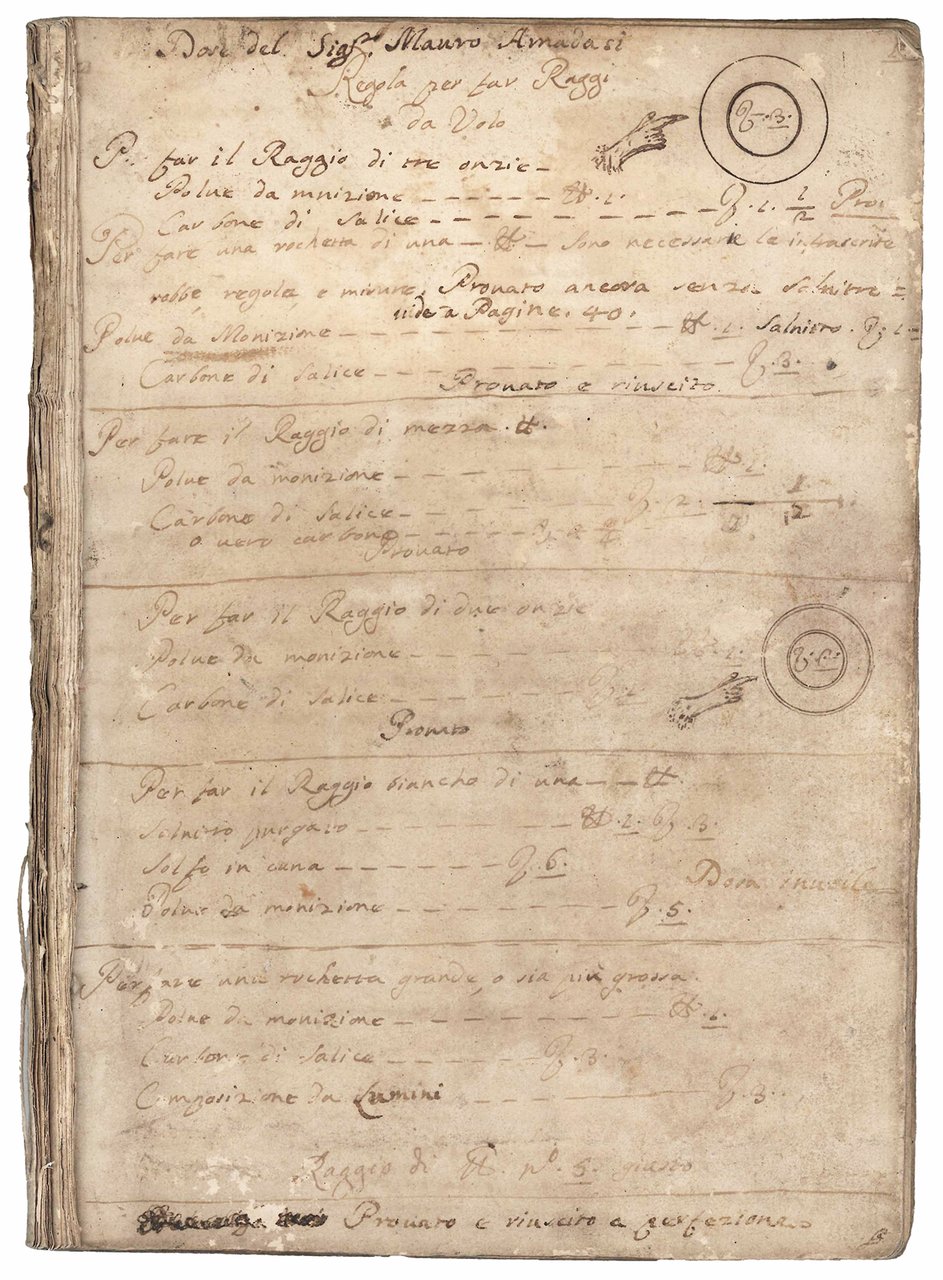 Dose del Sig.r Mauro Amadasi
Regola per far Raggi
da Volo
℥. 3.
P. far il Raggio di tre onzie
Polue da mnizione — — — — — — ℔. 1.
Carbone di Salice — — — — — — — — — ℥. 1. 1/2
Per fare una rochetta di una — ℔ — sono necessarie le infrascritte
robbe, regole e misure, Prouato ancora senza Salnitro =
uide a Pagine. 40.
Polue da Monizione — — — — — — — — — ℔. 1. Salnitro. ℥. 1. =
Carbone di Salice — — — — — — — — — ℥. 3.
Prouato e riuscito
Per fare il Raggio di mezza. ℔.
Polue da monizione — — — — — — — — — ℔. 1.
Carbone di Salice — — — — — — ℥. 2.
o uero carbone — — — — — ℥. 2
Prouato
Per far il Raggio di due onzie
Polue da monizione — — — — — — — 1.
Carbone di Salice — — — — — — ℥. 1
Prouato
Per far il Raggio biancho di una — — ℔.
Salnitro purgato — — — — — — ℔. 1. ℥. 3.
Solfo in cana — — — — — ℥. 6.
Dosa inutile
Polue da monizione — — — — — — — ℥. 5.
Per fare una rochetta grande, o sia più grossa.
Polue da monizione — — — — — — — — ℔. 1.
Carbone di Salice — — — — ℥. 3.
Composizione da Lumini — — — — — — ℥. 3.
Raggio di ℔. n.o 5. giusto
Prouato e riuscito a perfezione